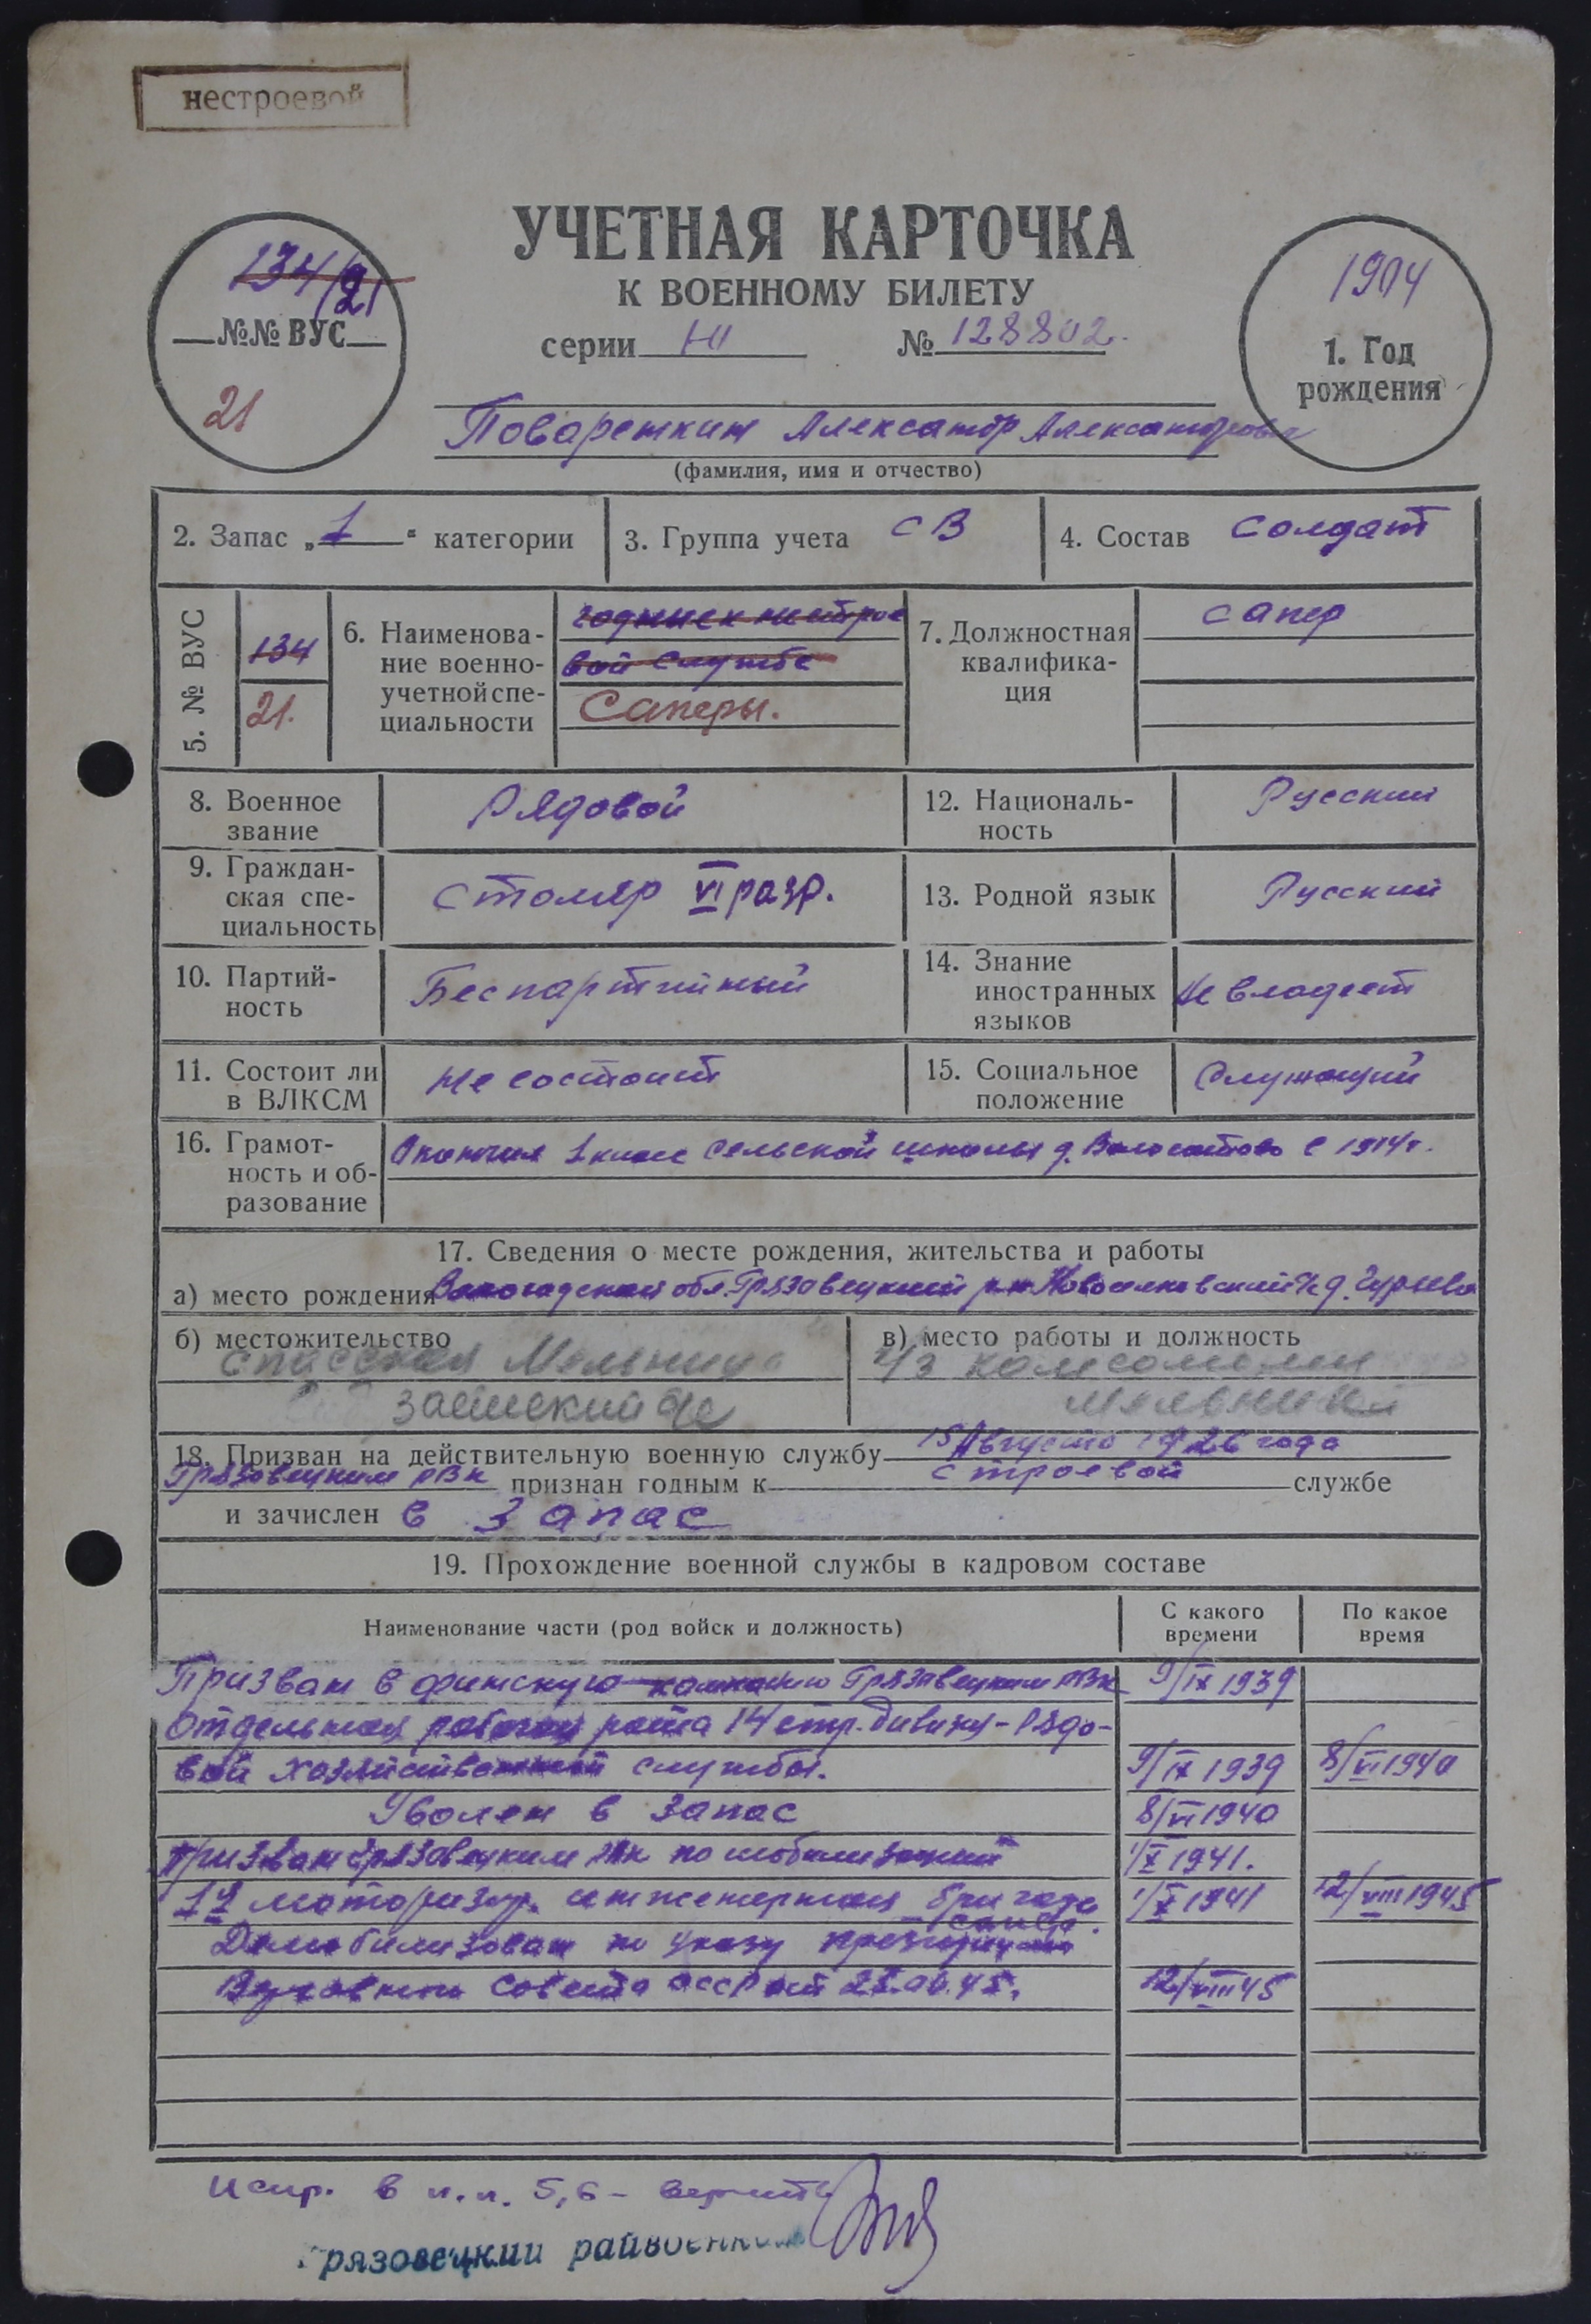 нестроевой
УЧЕТНАЯ КАРТОЧКА
К ВОЕННОМУ БИЛЕТУ
серии НI № 128802.
134/21
№№ ВУС
21
1904
1. Год
рождения
Поварешкин Александр Александрович
(фамилия, имя и отчество)
2. Запас „1“ категории
3. Группа учета СВ
4. Состав Солдат
5. № ВУС
134
21.
6. Наименова-
ние военно-
учетной спе-
циальности
годные к нестрое
вой службе
Саперы.
7. Должностная
квалифика-
ция
сапер
8. Военное
звание
Рядовой
12. Националь-
ность
Русский
9. Граждан-
ская спе-
циальность
Столяр VI разр.
13. Родной язык
Русский
10. Партий-
ность
Беспартийный
14. Знание
иностранных
языков
Не владеет
11. Состоит ли
в ВЛКСМ
Не состоит
15. Социальное
положение
Служащий
16. Грамот-
ность и об-
разование
Окончил 1 класс сельской школы д. в 1914 г.
17. Сведения о месте рождения, жительства и работы
а) место рождения Вологодская обл. Грязовецкий р-н д.
б) местожительство
Спасская Мельница
с/с
в) место работы и должность
18. Призван на действительную военную службу 15 Августа 1926 года
Грязовецким РВК признан годным к строевой службе
и зачислен в запас
19. Прохождение военной службы в кадровом составе
Наименование части (род войск и должность)
С какого
времени
По какое
время
Призван в финскую кампанию Грязовецким РВК 9/IX 1939
Отдельная рабочая рота 14 стр. дивизия - Рядо-
вой хозяйственной службы. 9/IX 1939 8/VI 1940
Уволен в запас 8/VI 1940
Призван Грязовецким РВК по мобилизации 1/X 1941.
1я моторизир. инженерная бригада 1/X 1941 12/VIII 1945
Демобилизован по указу президиума
Верховного Совета СССР от 12/VIII 45
Испр. в п.п. 5,6 - верить
рязовецкий райвоенком